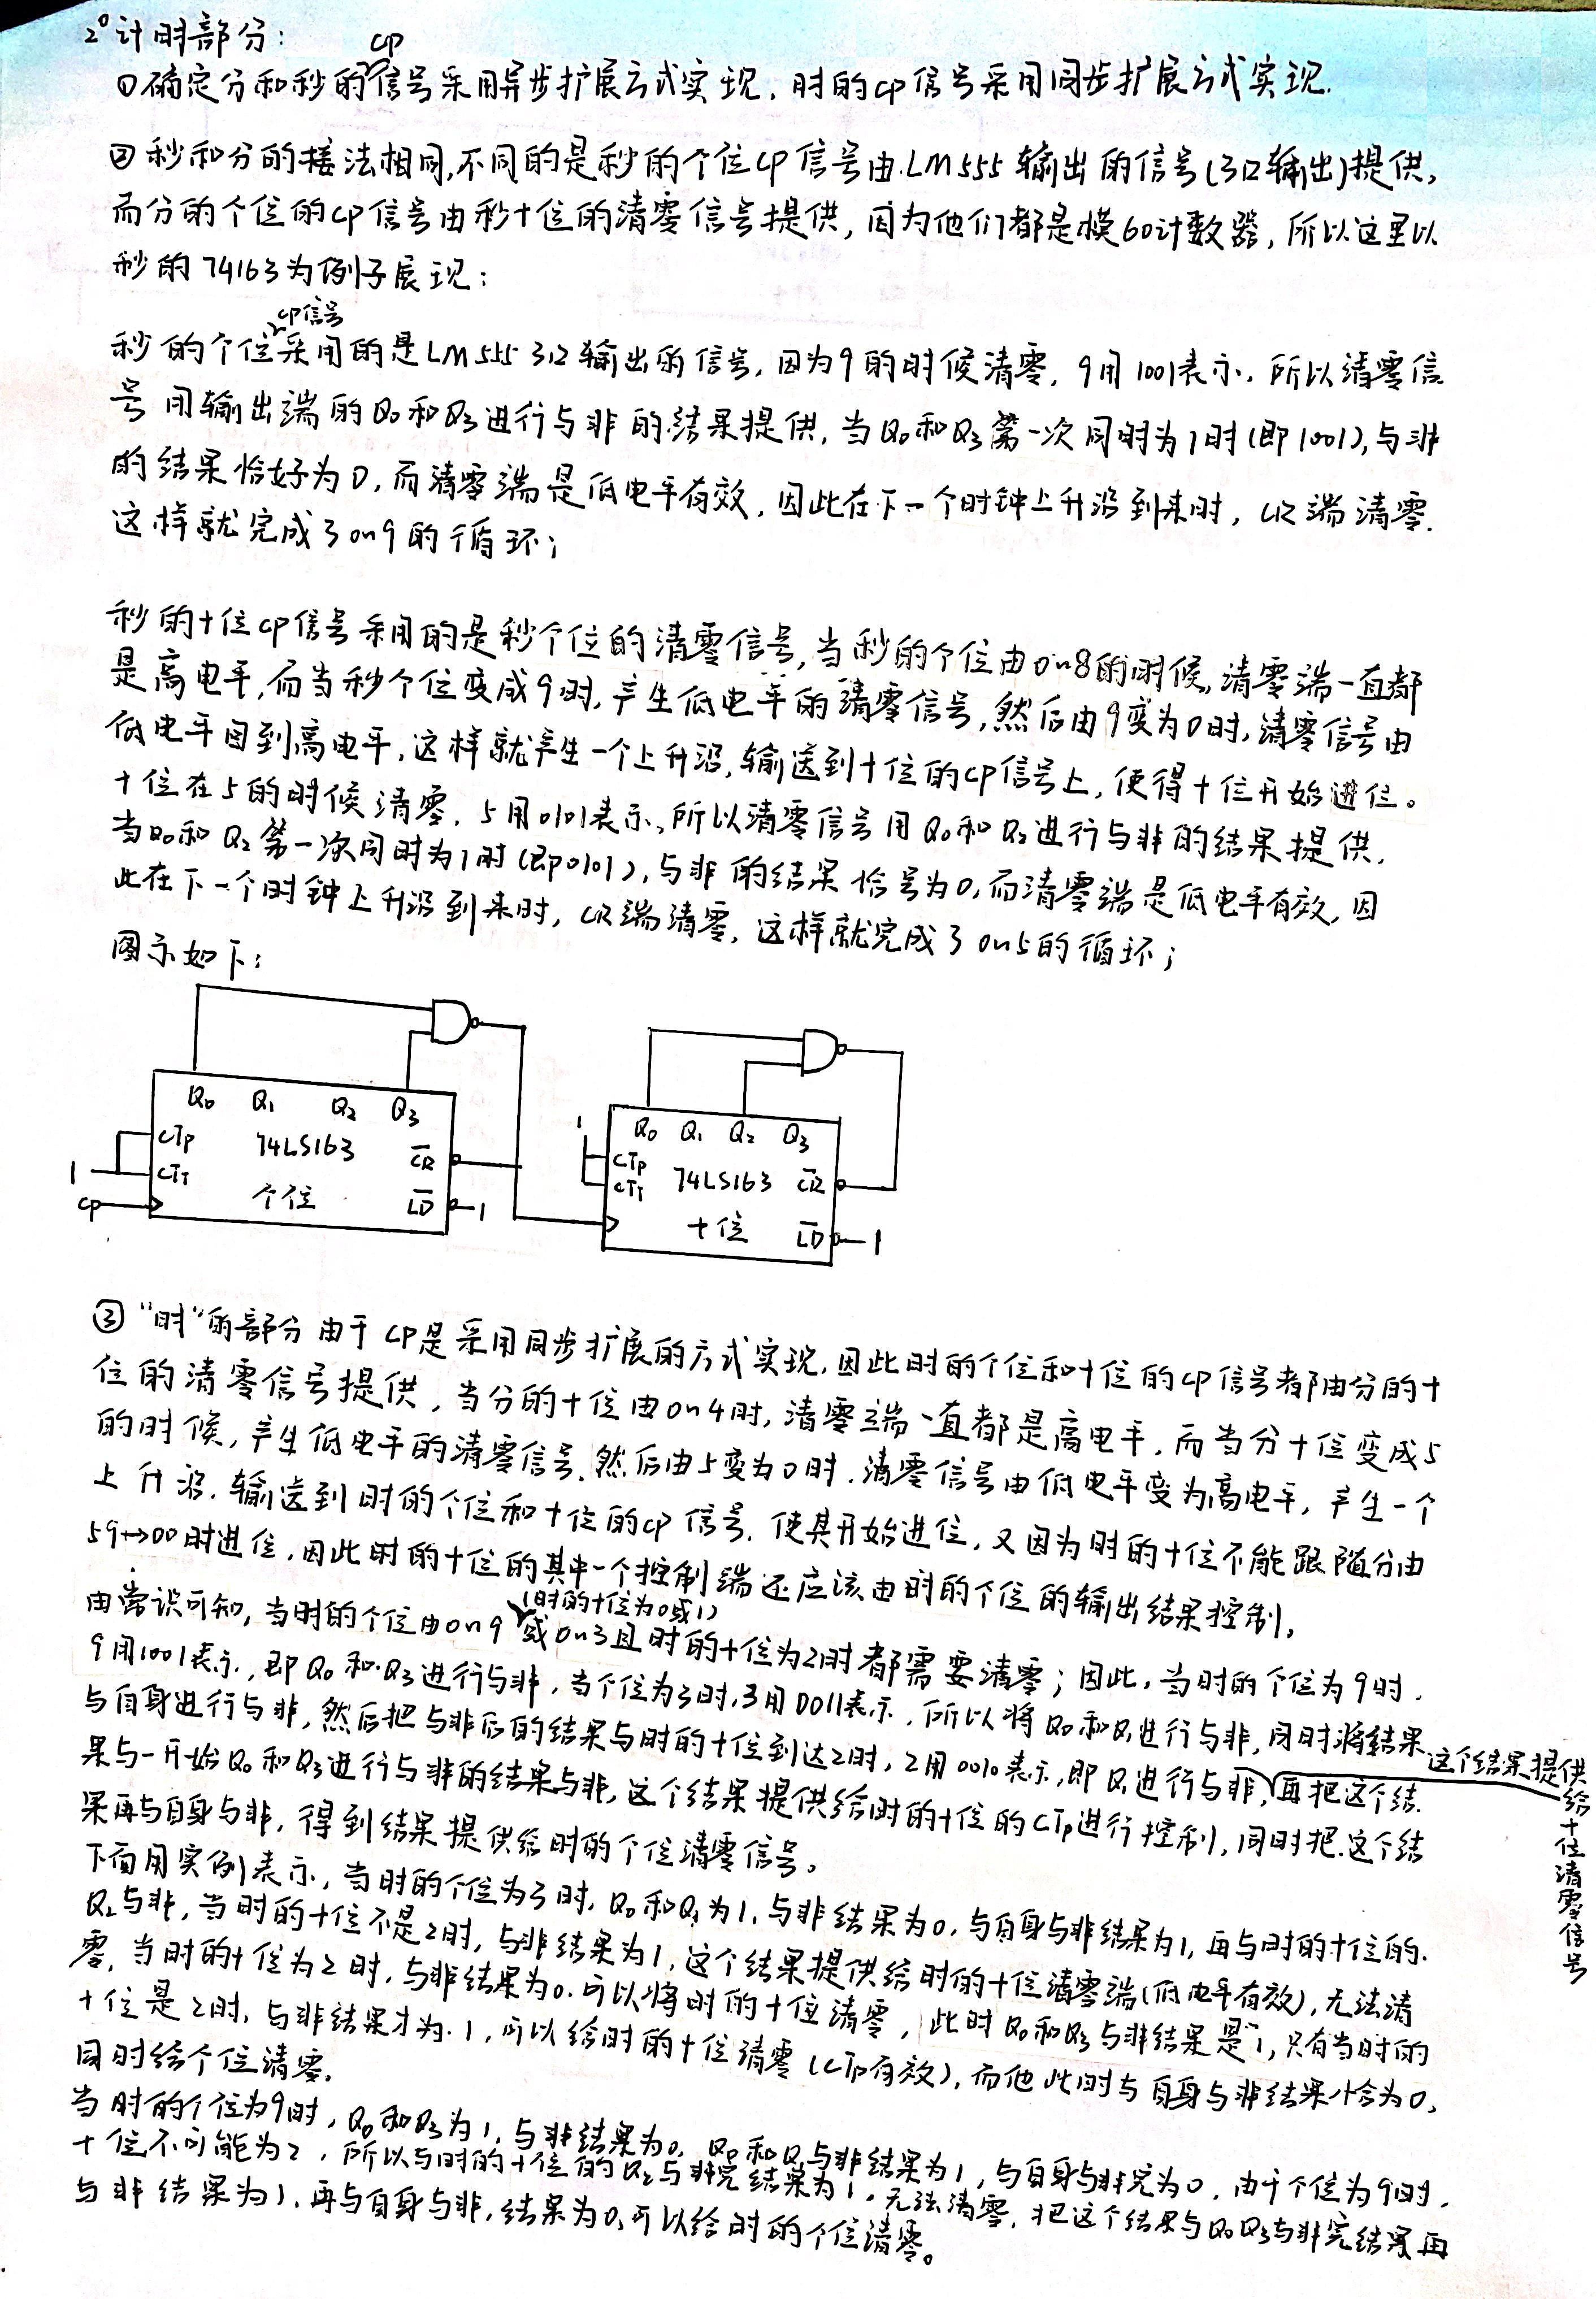 2° 计时部分:
①确定分和秒的CP信号采用异步扩展方式实现,时的CP信号采用同步扩展方式实现.
②秒和分的接法相同,不同的是秒的个位CP信号由LM555输出的信号(3口输出)提供,
而分的个位的CP信号由秒十位的清零信号提供,因为他们都是模60计数器,所以这里以
秒的74163为例子展现:
秒的个位CP信号采用的是LM555 3口输出的信号,因为9的时候清零,9用1001表示.所以清零信
号用输出端的Q0和Q3进行与非的结果提供,当Q0和Q3第一次同时为1时(即1001),与非
的结果恰好为0,而清零端是低电平有效,因此在下一个时钟上升沿到来时,CR端清零.
这样就完成了0~9的循环;
秒的十位CP信号采用的是秒个位的清零信号,当秒的个位由0~8的时候,清零端一直都
是高电平,而当秒个位变成9时,产生低电平的清零信号,然后由9变为0时,清零信号由
低电平回到高电平,这样就产生一个上升沿,输送到十位的CP信号上,使得十位开始进位。
十位在5的时候清零.5用0101表示,所以清零信号用Q0和Q2进行与非的结果提供.
当Q0和Q2第一次同时为1时(即0101),与非的结果恰号为0,而清零端是低电平有效,因
此在下一个时钟上升沿到来时,CR端清零,这样就完成了0~5的循环;
图示如下:
Q0 Q1 Q2 Q3
CTP 74LS163 CR
1 CTT
CP 个位 LD 1
1 Q0 Q1 Q2 Q3
CTP
CTT 74LS163 CR
十位 LD 1
③“时”的部分由于CP是采用同步扩展的方式实现,因此时的个位和十位的CP信号都由分的十
位的清零信号提供,当分的十位由0~4时,清零端一直都是高电平,而当分十位变成5
的时候,产生低电平的清零信号,然后由5变为0时.清零信号由低电平变为高电平,产生一个
上升沿.输送到时的个位和十位的CP信号.使其开始进位,又因为时的十位不能跟随分由
59→00时进位,因此时的十位的其中一个控制端还应该由时的个位的输出结果控制,
由常识可知,当时的个位由0~9(时的十位为0或1)或0~3且时的十位为2时都需要清零;因此,当时的个位为9时.
9用1001表示,即Q0和Q3进行与非,当个位为3时,3用0011表示,所以将Q0和Q1进行与非,同时将结果
与自身进行与非,然后把与非后的结果与时的十位到达2时,2用0010表示,即Q1进行与非,这个结果提供给十位清零信号再把这个结
果与一开始Q0和Q3进行与非的结果与非,这个结果提供给时的十位的CTP进行控制,同时把这个结
果再与自身与非,得到结果提供给时的个位清零信号。
下面用实例表示,当时的个位为3时,Q0和Q1为1.与非结果为0,与自身与非结果为1,再与时的十位的
Q2与非,当时的十位不是2时,与非结果为1,这个结果提供给时的十位清零端(低电平有效),无法清
零,当时的十位为2时,与非结果为0.可以将时的十位清零,此时Q0和Q3与非结果是1,只有当时的
十位是2时,与非结果才为1,可以给时的十位清零(CTP有效),而他此时与自身与非结果恰为0,
同时给个位清零.
当时的个位为9时,Q0和Q3为1,与非结果为0,Q0和Q1与非结果为1,与自身与非完为0,由于个位为9时,
十位不可能为2,所以与时的十位的Q2与非完结果为1,无法清零,把这个结果与Q0Q3与非完结果再
与非结果为1.再与自身与非,结果为0,可以给时的个位清零。